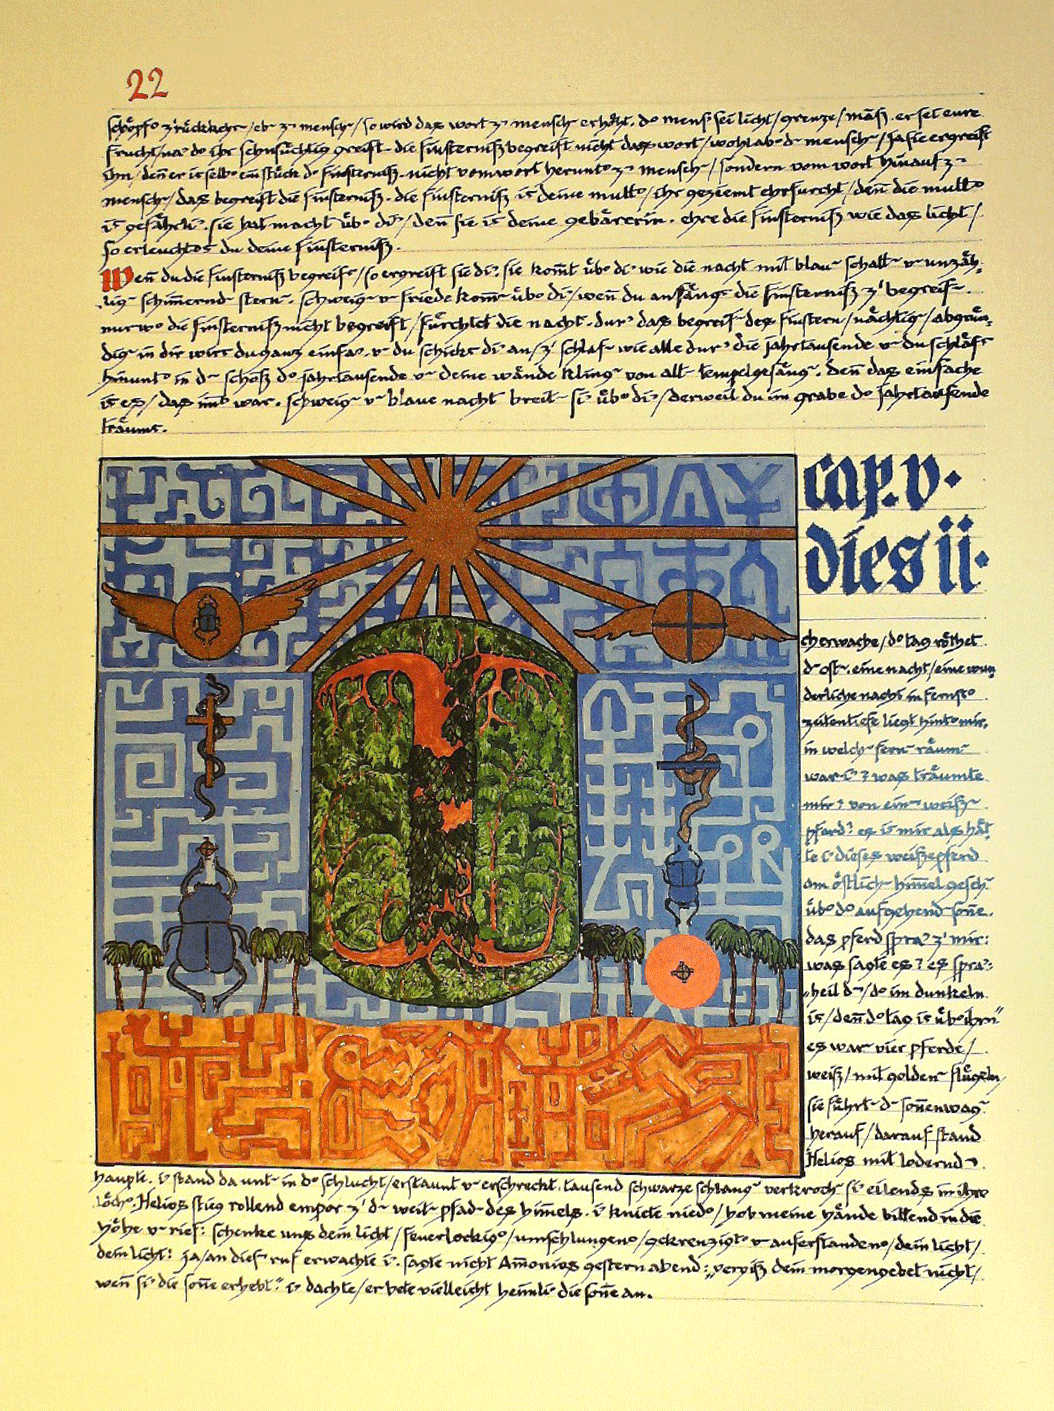 22
schöpf° z'rückkehr /eb z mensch/ so wird das wort z mensch erhöht. do mensch sei licht/grenze/maß. er sei eure
frucht/na do ihr sehnsüchtig greift. die finsterniß begreift nicht das wort/wohl ab° d mensch/ja sie ergreift
ihn/deñ er is selb° ein stück do finsterniß. nicht vom wort herunt° z mensch/sondern vom wort hinauf z
mensch/das begreift die finsterniß. die finsterniß is deine mutt°/ihr geziemt ehrfurcht/deñ die mutt°
is gefährli. sie hat macht üb° di/deñ sie is deine gebärerin. ehre die finsterniß wie das licht/
so erleuchtes du deine finsterniß.
Weñ du die finsterniß begreifs/so ergreift sie di. sie kom̄t üb° di wie die nacht mit blau schatt v unzäh,
lig schim̄ernd stern. schweig v friede kom̄ üb° di/weñ du anfängs die finsterniß z' begreif.
nur wo die finsterniß nicht begreift/fürchtet die nacht. dur das begreif des finstern/nächtig/abgrün,
dig in dir wirs du ganz einfa. v du schicks di an/z' schlaf wie alle dur die jahrtausende v du schläfs
hinunt° in d schoß do jahrtausende v deine wände kling von alt tempelgesäng. deñ das einfache
is es/das im̄° war. schweig v blaue nacht breit si üb° di/derweil du im grabe do jahrtausende
träums.
cap. v.
dies ii.
ch erwache/do tag röthet
d ost. eine nacht/eine wun
derliche nacht in fernst°
zeitentiefe liegt hint° mir.
in welch fern räum
war i? was träumte
mir? von ein weiß
pferd? es is mir als hät
te i dieses weiße pferd
am östlich him̄el geseh
üb° do aufgehend soñe.
das pferd spra z' mir:
was sagte es? es spra:
„heil d/do im dunkeln
is/deñ do tag is üb° ihm"
es war vier pferde/
weiß/mit golden flügeln,
sie führt d soñenwag
herauf/darauf stand
Helios mit lodernd
haupte. i stand da unt in do schlucht/erstaunt v erschreckt. tausend schwarze schlang verkroch si eilends in ihre
löch°. Helios stieg rollend empor z' d weit pfad des him̄els. i kniete nied°/hob meine hände bittend in die
höhe v rief: schenke uns dein licht/feuerlockig°/umschlungen°/gekreuzigt° v auferstanden°/dein licht/
dein licht! ja/an dies ruf erwachte i. sagte nicht Am̄onios gestern abend: „vergiß dein morgengebet nicht/
weñ si die soñe erhebt." i dachte/er bete vielleicht heimli die soñe an.